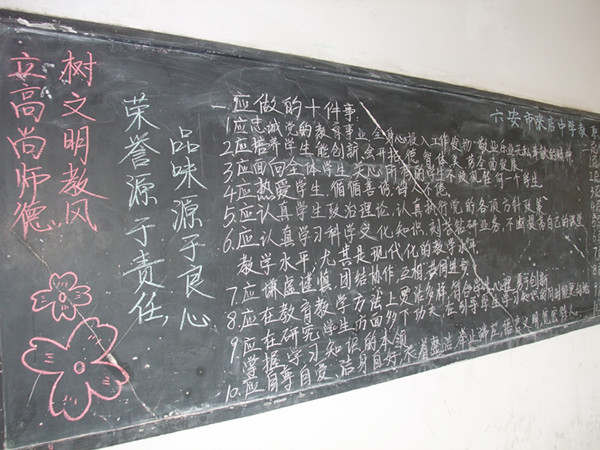 立高尚师德
树文明教风
荣誉源于责任,
品味源于良心
一、应做的十件事:
六安市 店中学教
1、应忠诚党的教育事业,全身心投入工作
2、应培养学生能创新会开拓,德智体美劳全面发展
3、应面向全体学生,关心所有的学生,不歧视任何一个学生
4、应热爱学生,循循善诱,诲人不倦
5、应认真学生政治理论,认真执行党的各项方针政策
6、应认真学习科学文化知识,刻苦钻研业务,不断提高自己的课堂
教学水平,尤其是现代化的教学水平
7、应谦虚谨慎,团结协作,互相 同进步
8、应在教育教学方法上灵活多样,符合学生心理,勇于创新
9、应在研究学生方面多下功夫,在引导学生学习知识的同时
掌握学习知识的本领
10、应自尊自爱,